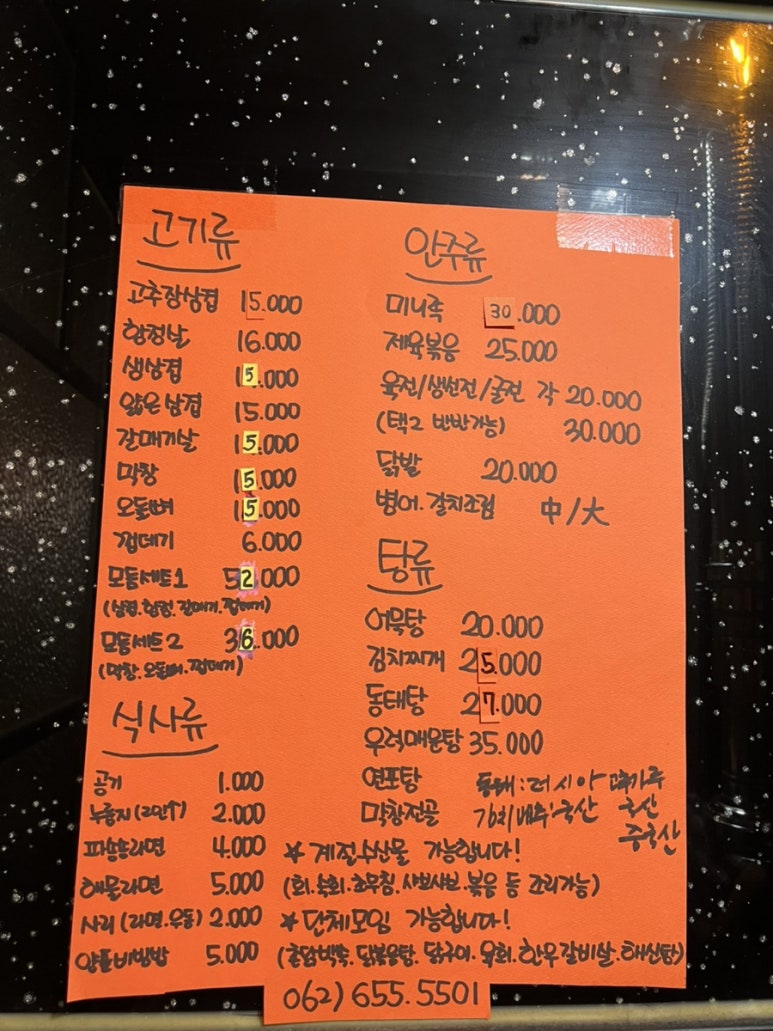 고기류
고추장삼겹 15.000
항정날 16.000
생삼겹 15.000
얇은삼겹 15.000
갈매기날 15.000
막창 15.000
오돌뼈 15.000
껍데기 6.000
모듬세트1 52.000
(삼겹.항정.갈매기.껍데기)
모듬세트2 36.000
(막창.오돌뼈.껍데기)
식사류
공기 1.000
누룽지(2인分) 2.000
파송송라면 4.000
해물라면 5.000
사리(라면.우동) 2.000
양푼비빔밥 5.000
안주류
미니족 30.000
제육볶음 25.000
육전/생선전/굴전 각 20.000
(택2 반반가능) 30.000
닭발 20.000
병어.갈치조림 中/大
탕류
어묵탕 20.000
김치찌개 25.000
동태탕 27.000
우럭매운탕 35.000
연포탕
막창전골
동태:러시아 고추가루
김치배추:국산 국산
중국산
* 계절수산물 가능합니다!
(회.숙회.초무침.샤브샤브.볶음 등 조리가능)
* 단체모임 가능합니다!
(촌닭백숙.닭볶음탕.닭구이.육회.한우갈비살.해신탕)
062) 655.5501